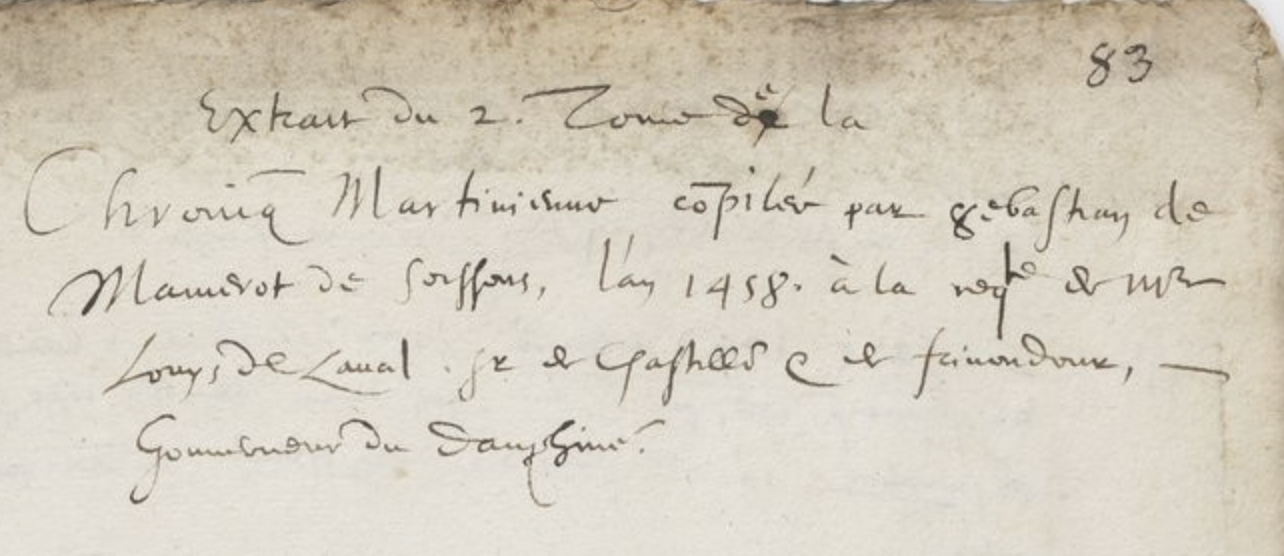 83
Extrait du 2. Tome de la
Chroniq̄ Martinienne cōpilée par Sebastian de
Mamerot de Soissons, l'an 1458. à la reqte de Mre
Louys de Laval. Sr de Chastillō & de frinondour,
Gouverneur du Dauphiné.